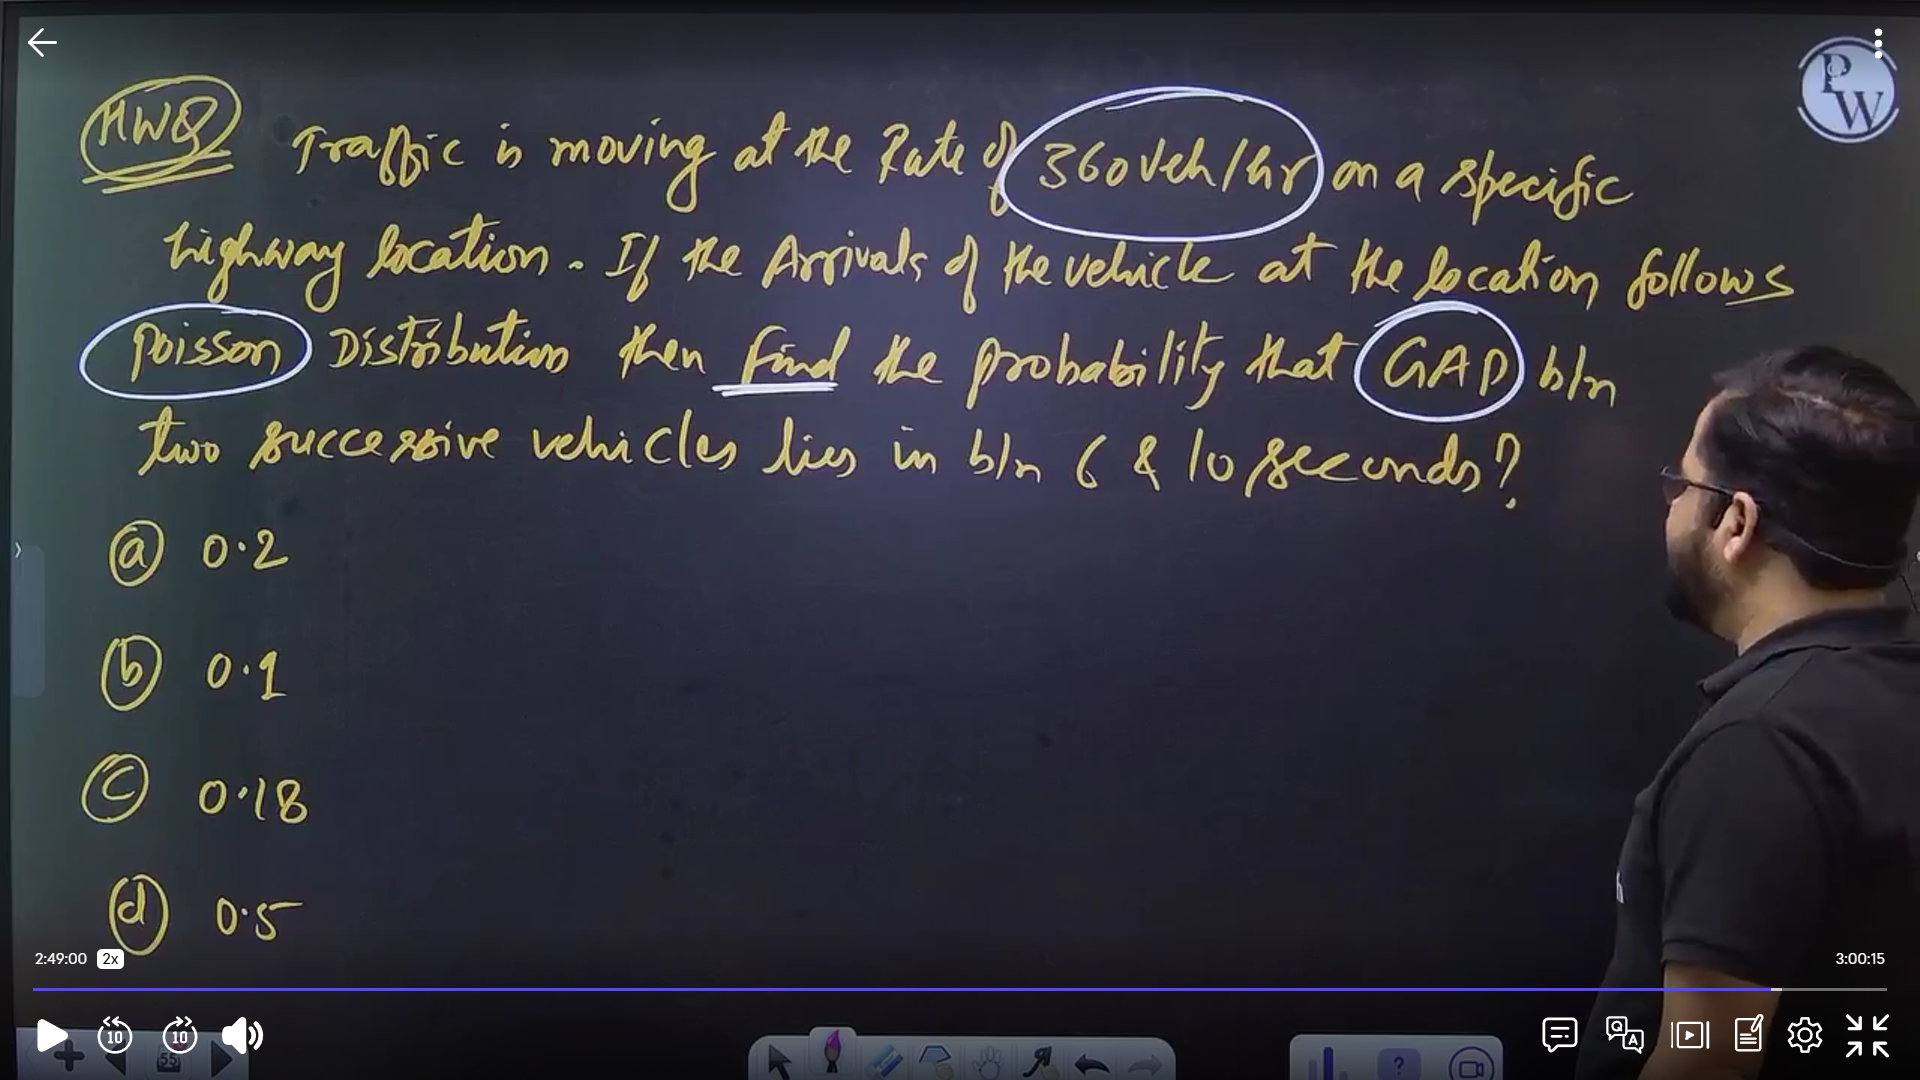 HWQ Traffic is moving at the Rate of 360 Veh/hr on a specific
highway location. If the Arrivals of the vehicle at the location follows
Poisson Distribution then Find the probability that GAP b/n
two successive vehicles lies in b/n 6 & 10 seconds?
(a) 0.2
(b) 0.1
(c) 0.18
(d) 0.5
PW
2:49:00 2x
3:00:15
10 10
55
?
Q A